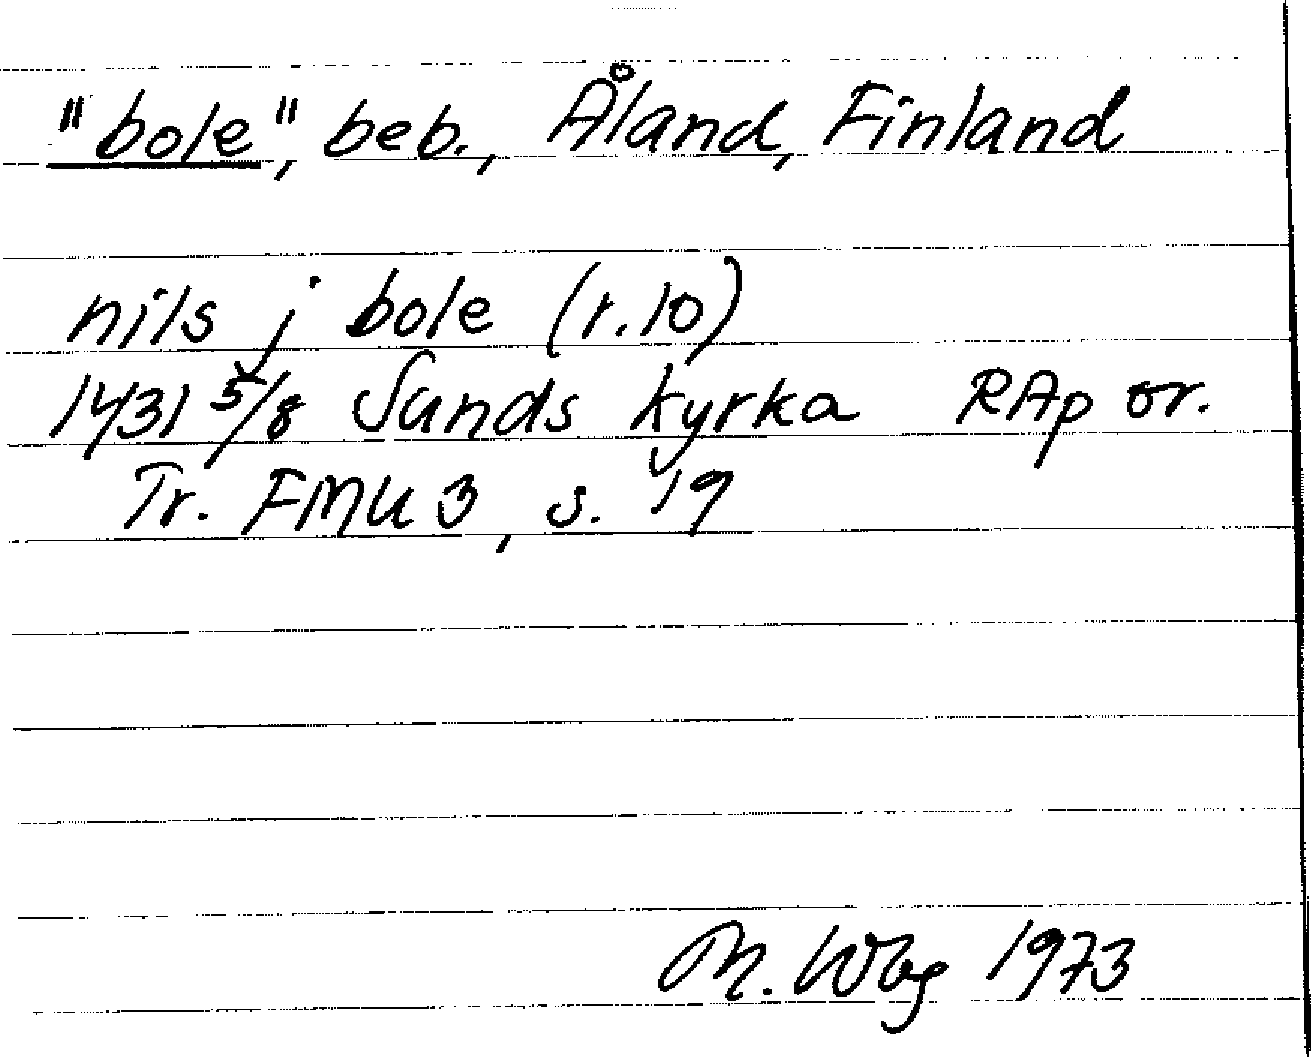 "bole", beb., Åland, Finland
nils j bole (r.10)
1431 5/8 Sunds kyrka RAp or.
Tr. FMU 3, s. 19
M. Wbg 1973